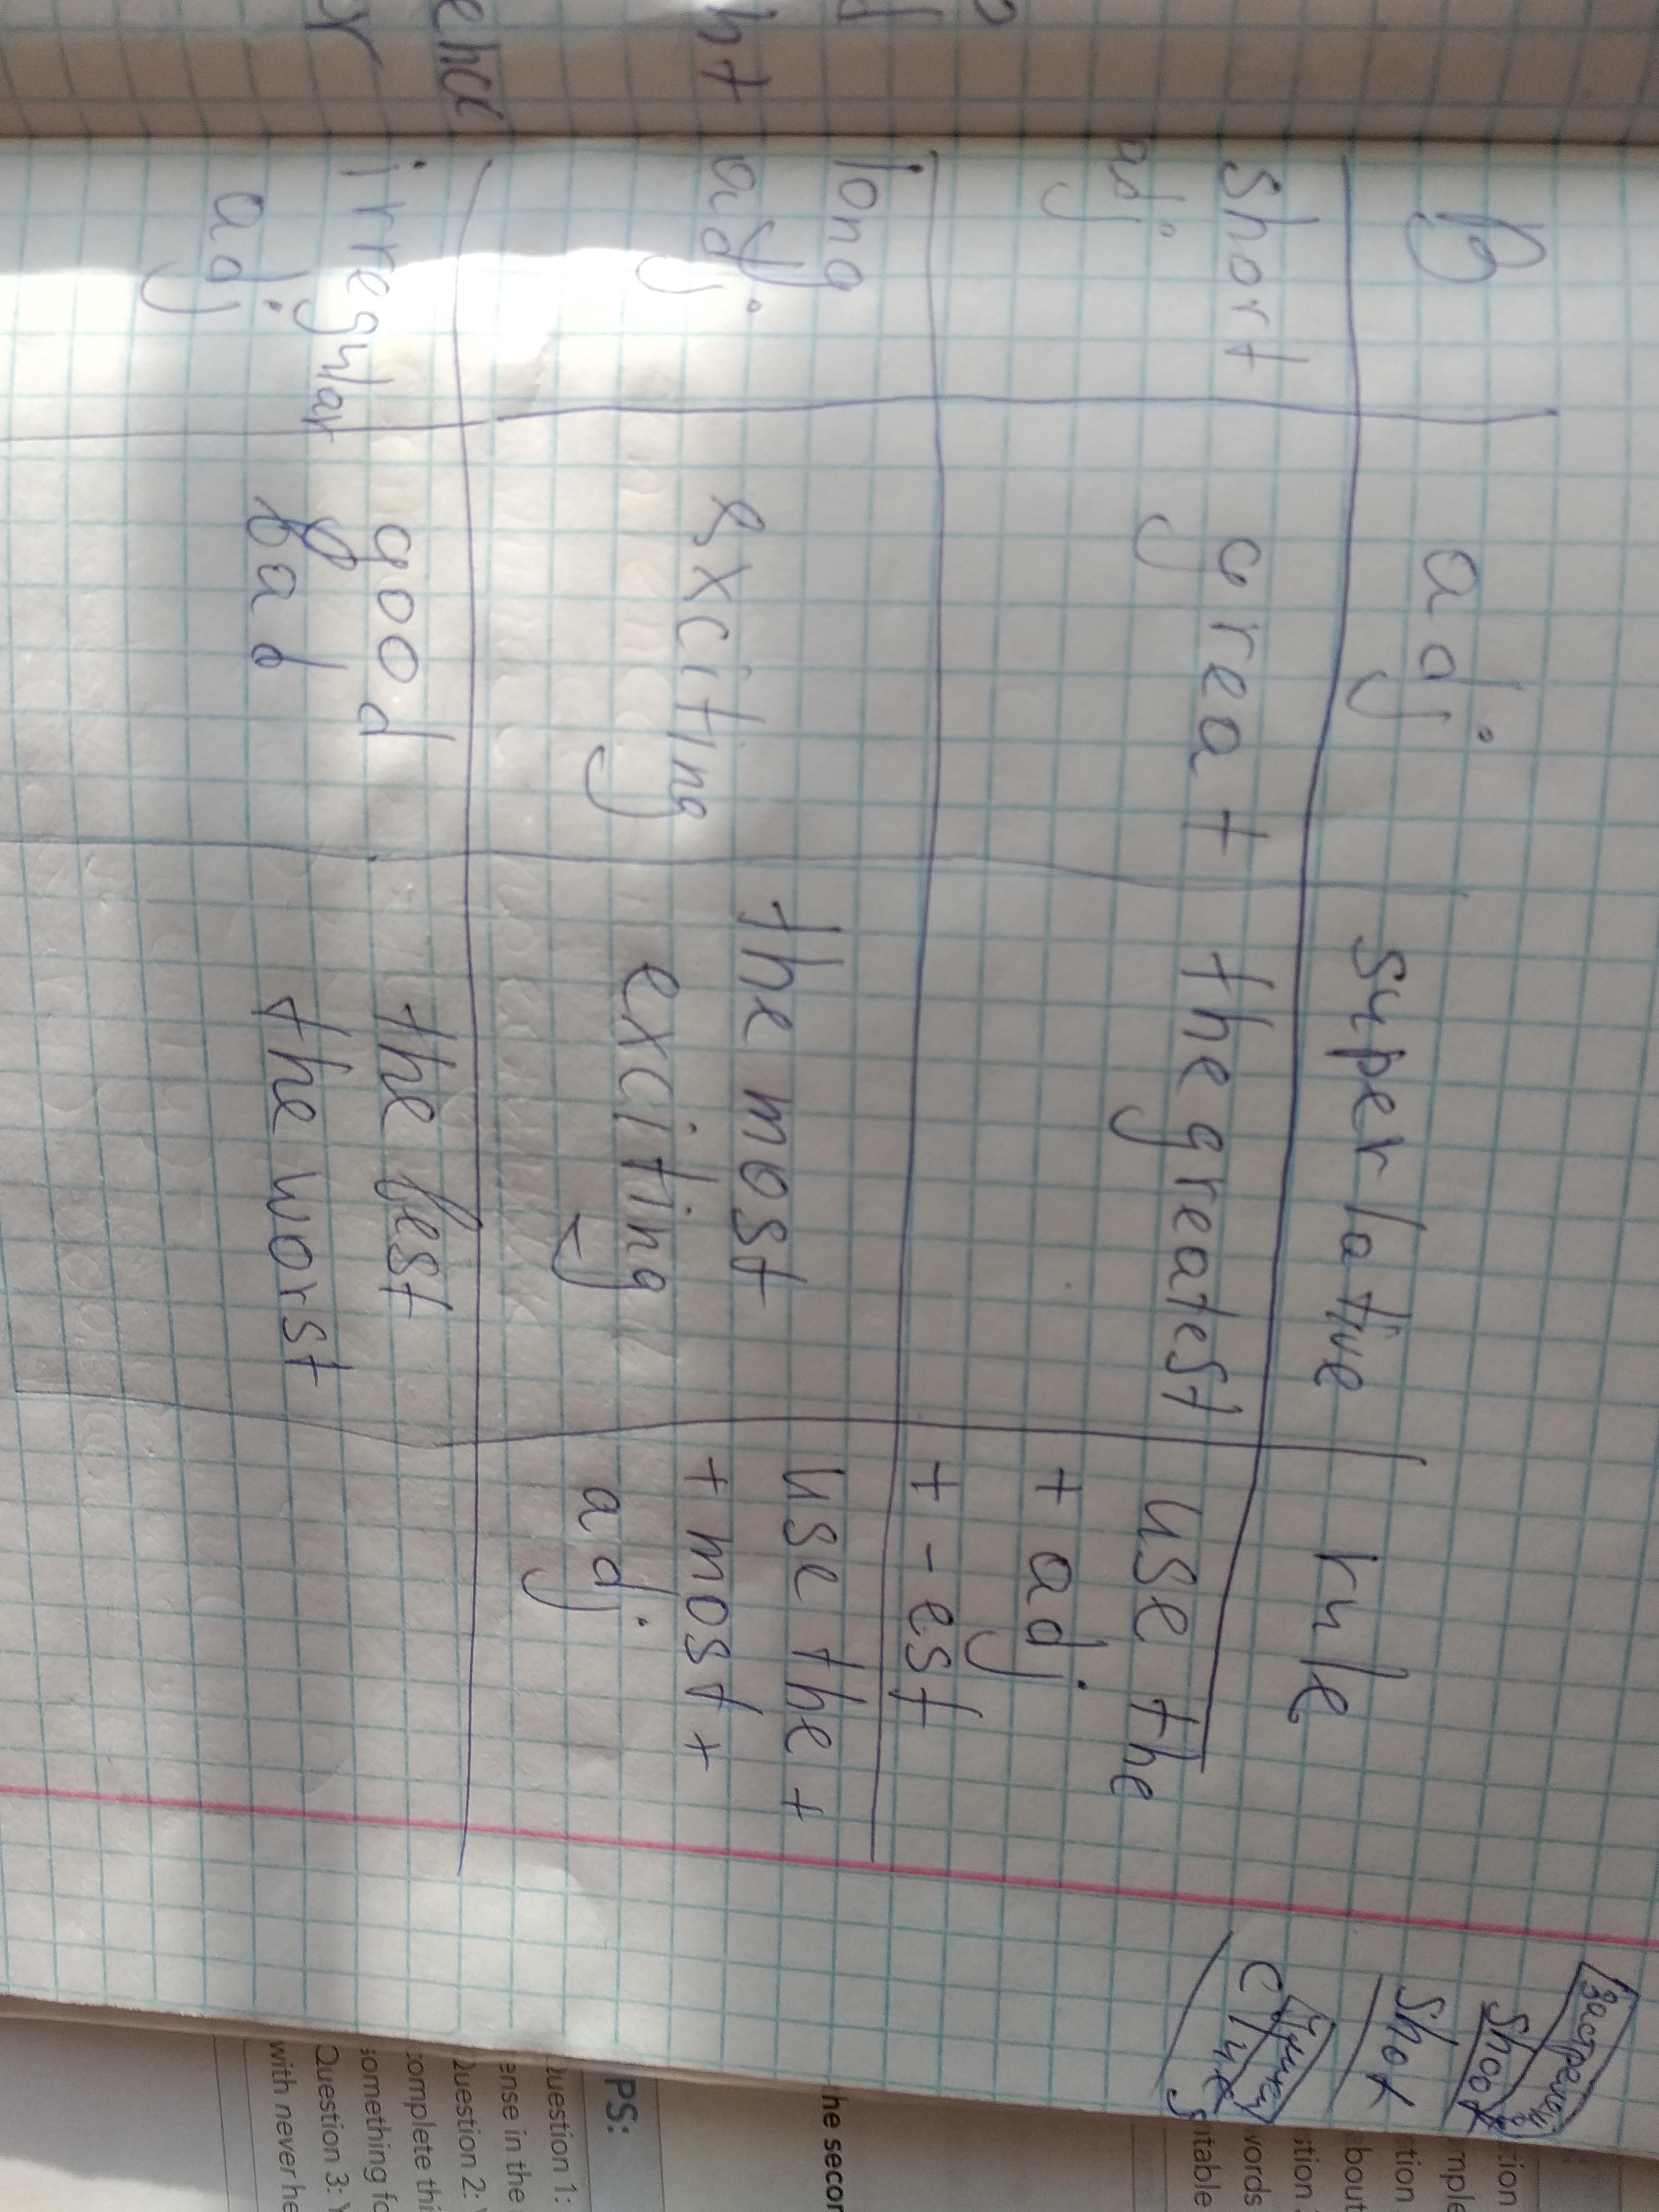 B adj superlative rule
short adj great the greatest use the
+ adj
+ -est
long adj. exciting the most exciting use the +
+ most +
adj
irregular adj good the best
bad the worst
Shoot
Shot
ence
ht
he secon
PS:
Question 1:
ense in the
Question 2:
complete thi
something fo
Question 3: Y
with never he
tion
mple
tion
bout
stion
words
itable